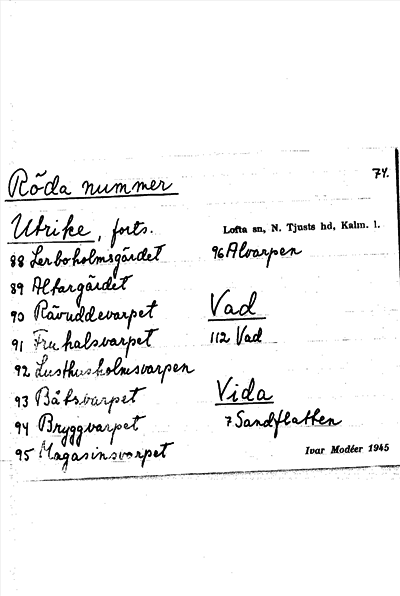 74.
Röda nummer
Utrike, forts.
Lofta sn, N. Tjusts hd, Kalm. l.
88 Lerboholmsgärdet
89 Altargärdet
90 Rävuddevarpet
91 Fruhalsvarpet
92 Lusthusholmsvarpen
93 Båtsvarpet
94 Bryggvarpet
95 Magasinsvarpet
96 Alvarpen
Vad
112 Vad
Vida
7 Sandflatten
Ivar Modéer 1945